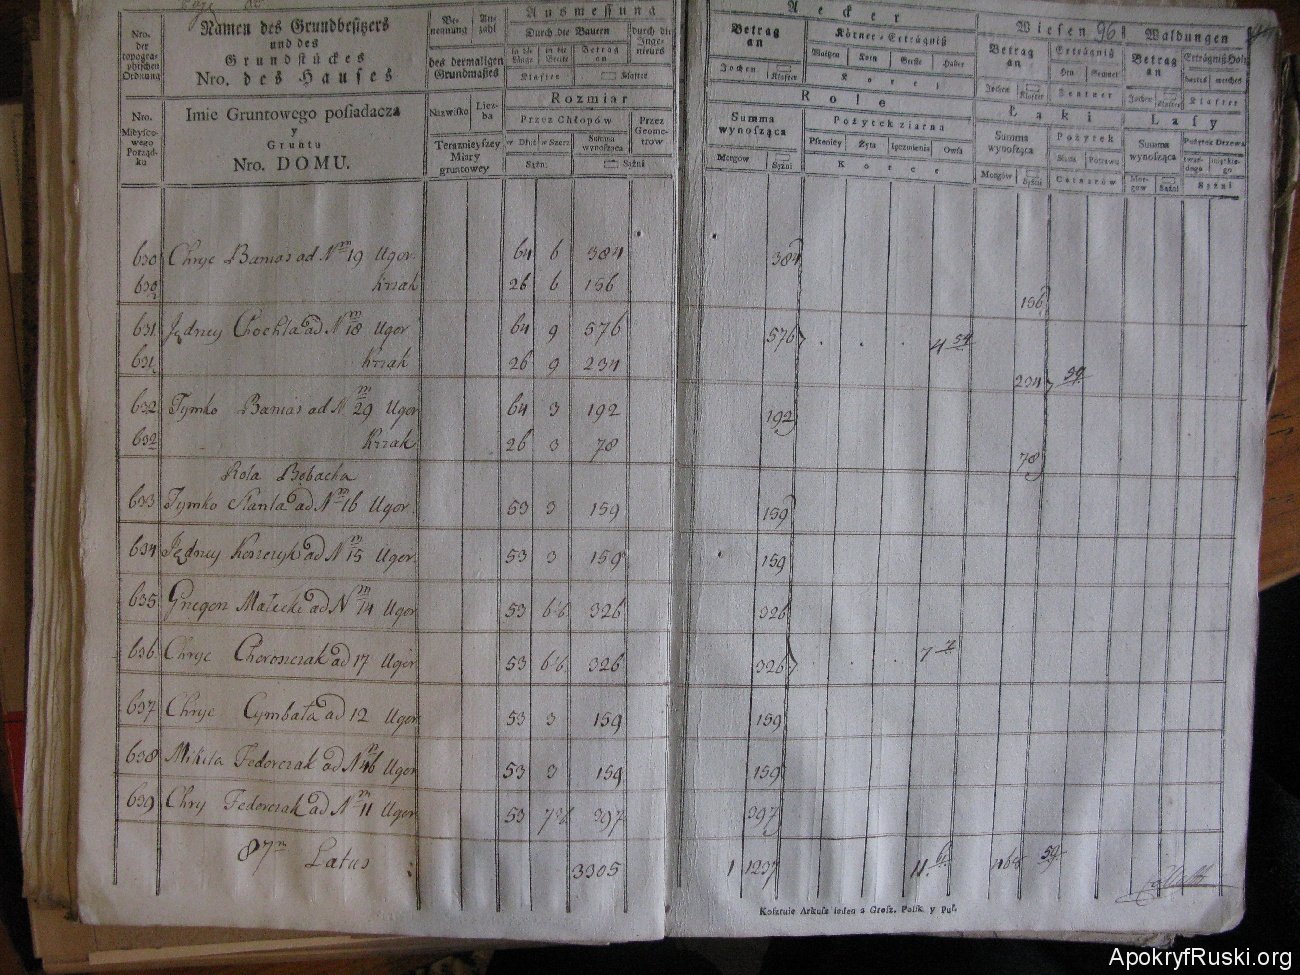 Nro. der topographischen Ordnung
Namen des Grundbesitzers und des Grundstückes Nro. des Hauses
Benennung Anzahl
des dermaligen Grundmaßes
Ausmessung
Durch die Bauern
in die Länge in die Breite Betrag an
Klafter Klafter
durch die Ingenieurs
Nro. Mieyscowego Porządku
Imie Gruntowego posiadacza y Gruntu Nro. DOMU.
Nazwisko Liczba
Teraznieyszey Miary gruntowey
Rozmiar
Przez Chłopów
w Dłuż w Szerz Summa wynosząca
Sążni. Sążni
Przez Geometrow
Aecker
Betrag an
Jochen Klafter
Körner-Erträgniß
Waitzen Korn Gerste Haber
Korez
Wiesen 96
Betrag an
Jochen Klafter
Erträgniß
Heu Grumet
Zentner
Waldungen
Betrag an
Jochen Klafter
Erträgniß Holz
hartes weiches
Klafter
Role
Summa wynosząca
Morgow Sążni
Pożytek ziarna
Pszenicy Żyta Jęczmienia Owsa
Korcr
Łąki
Summa wynosząca
Morgów Sążni
Pożytek
Siana Potrawu
Cetnarów
Lasy
Summa wynosząca
Morgow Sążni
Pożytek Drzewa
twardego miękkiego
Sążni
630 Chryc Banias ad Nm 19 Ugor 64 6 384 384
630 Krzak 26 6 156 156
631 Jędrzey Chochla ad Nm 18 Ugor 64 9 576 576 4 54
631 Krzak 26 9 234 234 59
632 Tymko Banias ad Nm 29 Ugor 64 3 192 192
632 Krzak 26 3 78 78
Rola Bobacka
633 Tymko Stanka ad Nm 16 Ugor 53 3 159 159
634 Jędrzey ad Nm 15 Ugor 53 3 159 159
635 Gregorz Małecki ad Nm 14 Ugor 53 326 326
636 Chryc Choroszczak ad 17 Ugor 53 326 326 7
637 Chryc Cymbała ad 12 Ugor 53 3 159 159
638 Mikita Fedorczak ad N 46 Ugor 53 3 159 159
639 Chry Fedorczak ad Nm 11 Ugor 53 397 397
87m Latus 3305 1 1237 11 468 59
Kosztuie Arkusz ieden 2 Grosz. Polsk. y Puł.
ApokryfRuski.org